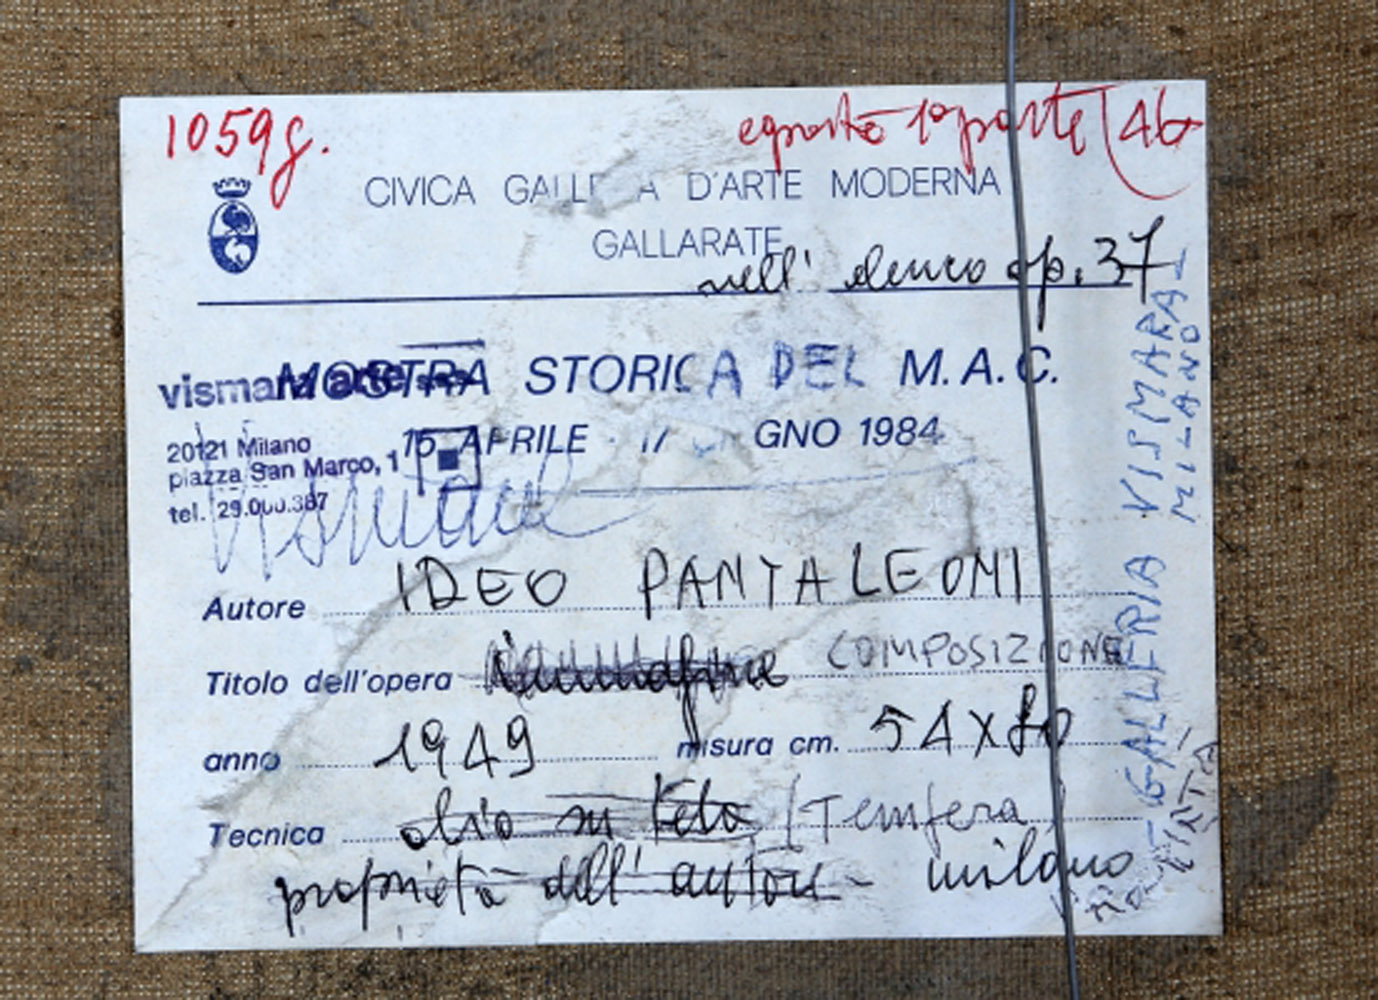 1059g.
esposto 1a parte (46
CIVICA GALLERIA D'ARTE MODERNA
GALLARATE
nell' elenco op. 37
MOSTRA STORICA DEL M.A.C.
vismara arte
15 APRILE - 17 GIUGNO 1984
20121 Milano
piazza San Marco, 1
tel. 29.000.387
Vismara
Autore IDEO PANTALEONI
Titolo dell'opera COMPOSIZIONE
anno 1949 misura cm. 54 x 80
Tecnica olio su tela (Tempera)
proprietà dell'autore - milano
GALLERIA VISMARA -
MILANO